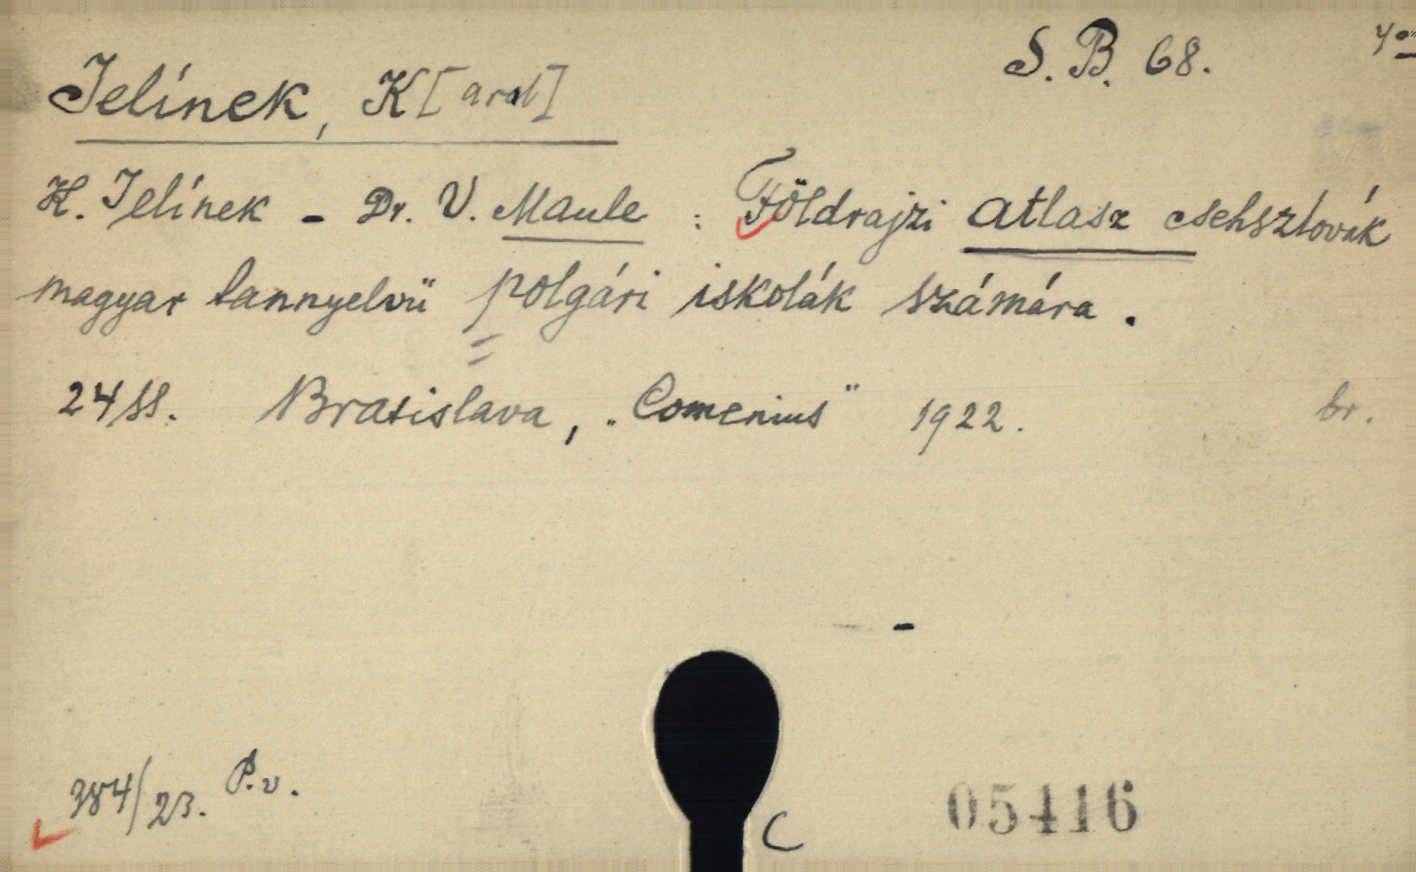 S. B. 68. 4°
Jelínek, K[arol]
K. Jelínek - Dr. V. Maule : Földrajzi atlasz csehszlovák
magyar tannyelvü polgári iskolák számára.
24 ss. Bratislava, "Comenius" 1922. br.
384/23. P.v.
C
05416